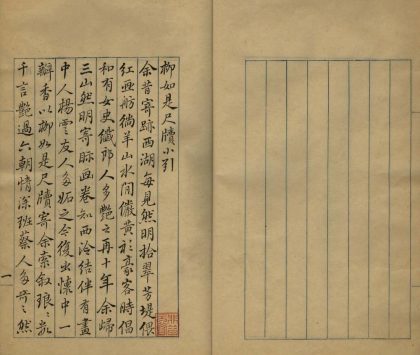 柳如是尺牘小引
余昔寄跡西湖每見然明拾翠芳堤偎
紅画舫徜徉山水間儼黃衫豪客時倡
和有女史纖郎人多艷之再十年余歸
三山然明寄眎画卷知西泠結伴有畫
中人楊雲友人多妬之今復出懷中一
瓣香以柳如是尺牘寄余索敘琅々數
千言艷過六朝情深班蔡人多奇之然
一